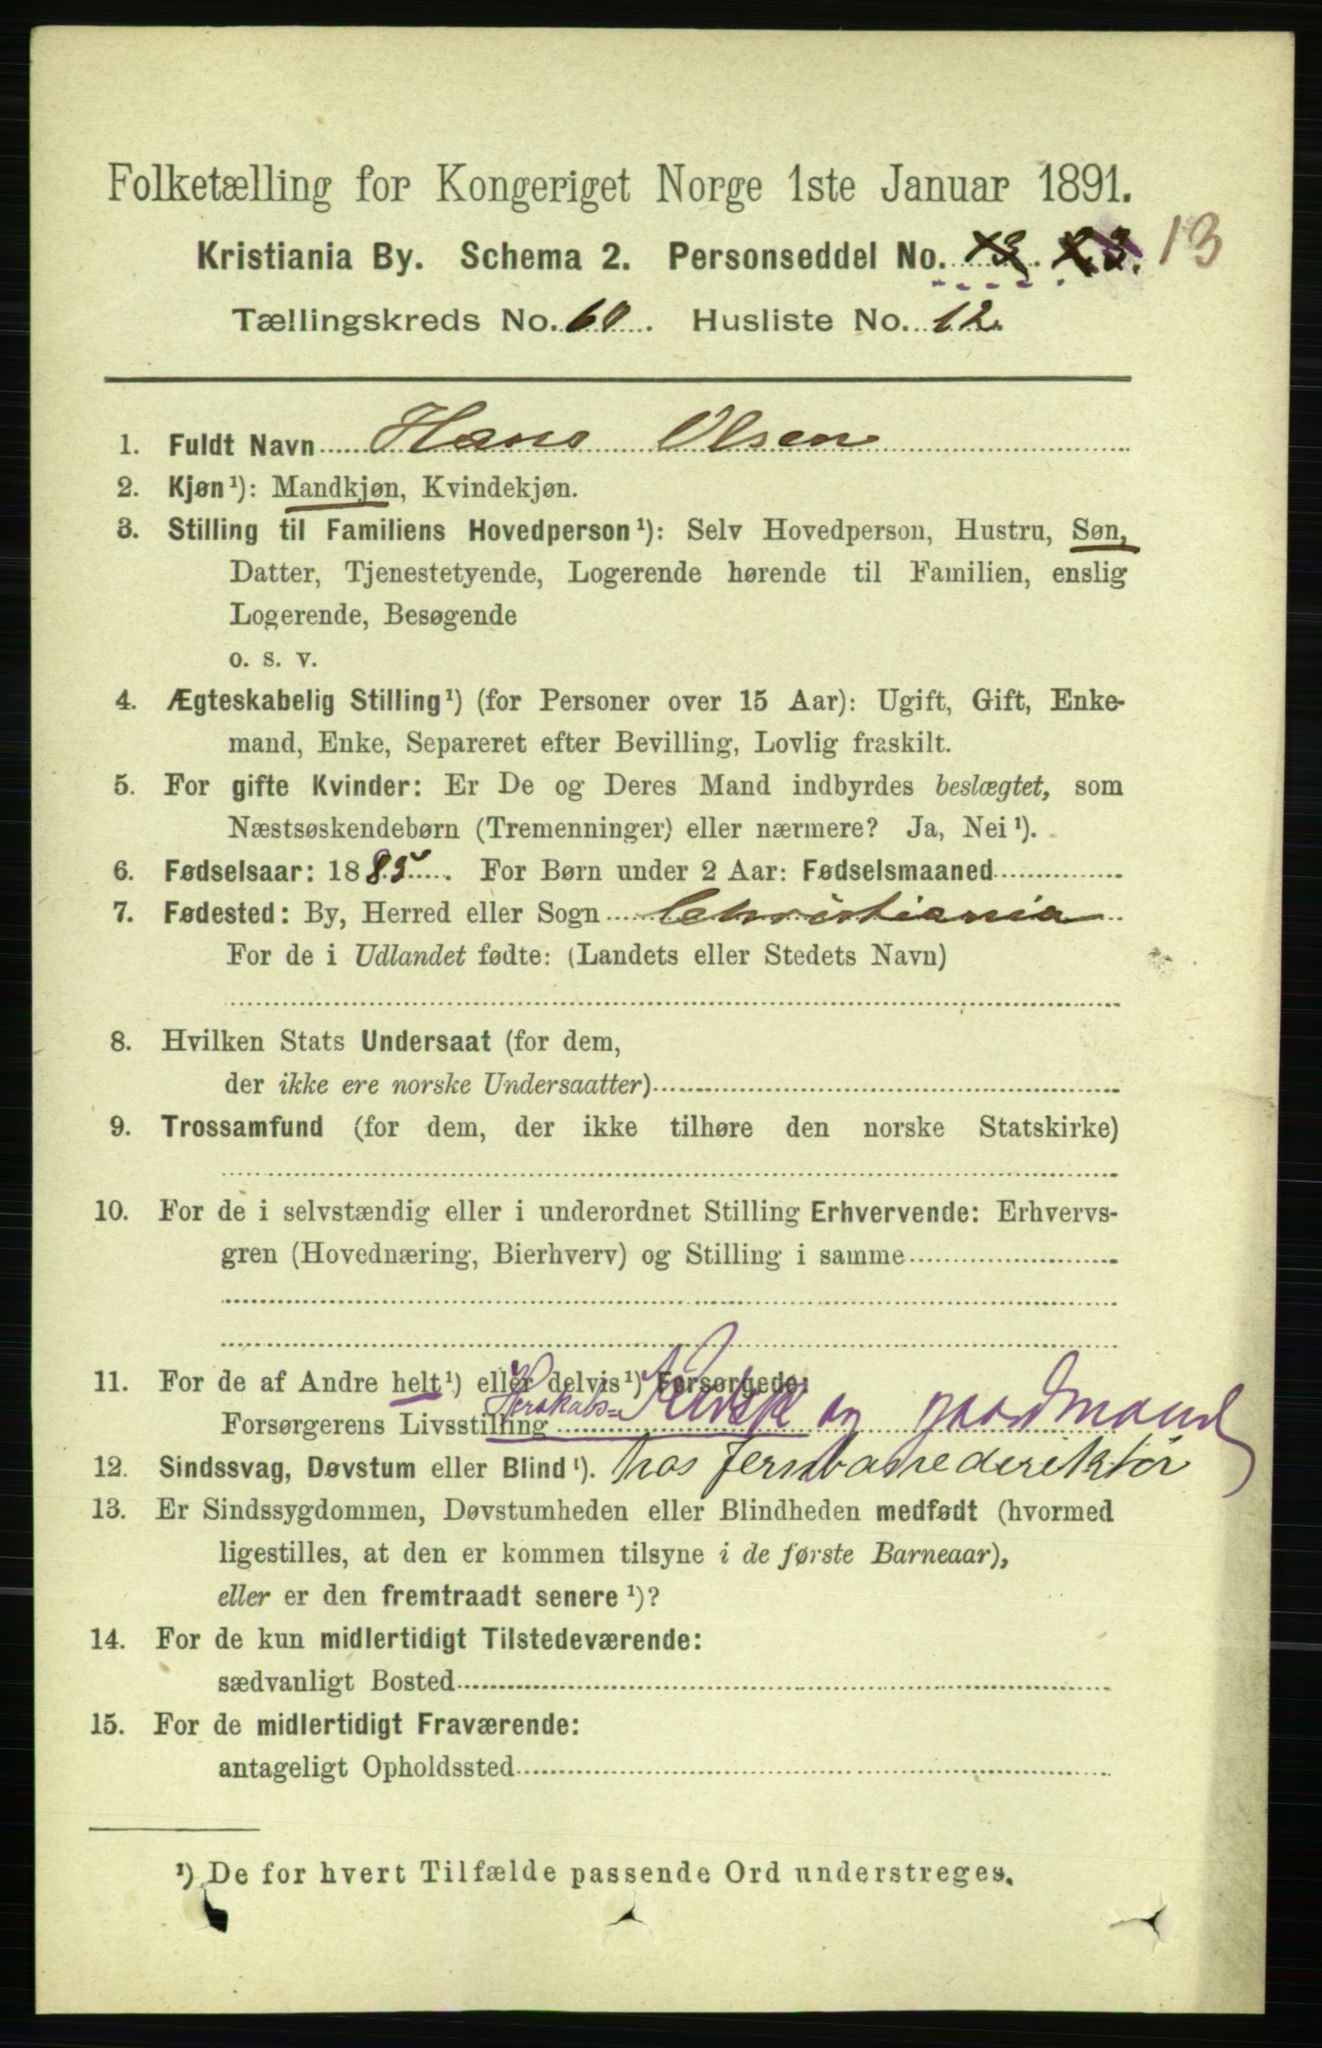 Folketælling for Kongeriget Norge 1ste Januar 1891.
Kristiania By. Schema 2. Personseddel No. 13 13. 13
Tællingskreds No. 60. Husliste No. 12.
1. Fuldt Navn Hans Olsen
2. Kjøn¹): Mandkjøn, Kvindekjøn.
3. Stilling til Familiens Hovedperson¹): Selv Hovedperson, Hustru, Søn,
Datter, Tjenestetyende, Logerende hørende til Familien, enslig
Logerende, Besøgende
o. s. v.
4. Ægteskabelig Stilling¹) (for Personer over 15 Aar): Ugift, Gift, Enke-
mand, Enke, Separeret efter Bevilling, Lovlig fraskilt.
5. For gifte Kvinder: Er De og Deres Mand indbyrdes beslægtet, som
Næstsøskendebørn (Tremenninger) eller nærmere? Ja, Nei¹).
6. Fødselsaar: 1885. For Børn under 2 Aar: Fødselsmaaned
7. Fødested: By, Herred eller Sogn Christiania
For de i Udlandet fødte: (Landets eller Stedets Navn)
8. Hvilken Stats Undersaat (for dem,
der ikke ere norske Undersaatter)
9. Trossamfund (for dem, der ikke tilhøre den norske Statskirke)
10. For de i selvstændig eller i underordnet Stilling Erhvervende: Erhvervs-
gren (Hovednæring, Bierhverv) og Stilling i samme
11. For de af Andre helt¹) eller delvis¹) Forsørgede:
Forsørgerens Livsstilling Herskabs= Kudsk og gaardmand
12. Sindssvag, Døvstum eller Blind¹). hos jernbanedirektør
13. Er Sindssygdommen, Døvstumheden eller Blindheden medfødt (hvormed
ligestilles, at den er kommen tilsyne i de første Barneaar),
eller er den fremtraadt senere¹)?
14. For de kun midlertidigt Tilstedeværende:
sædvanligt Bosted
15. For de midlertidigt Fraværende:
antageligt Opholdssted
¹) De for hvert Tilfælde passende Ord understreges.